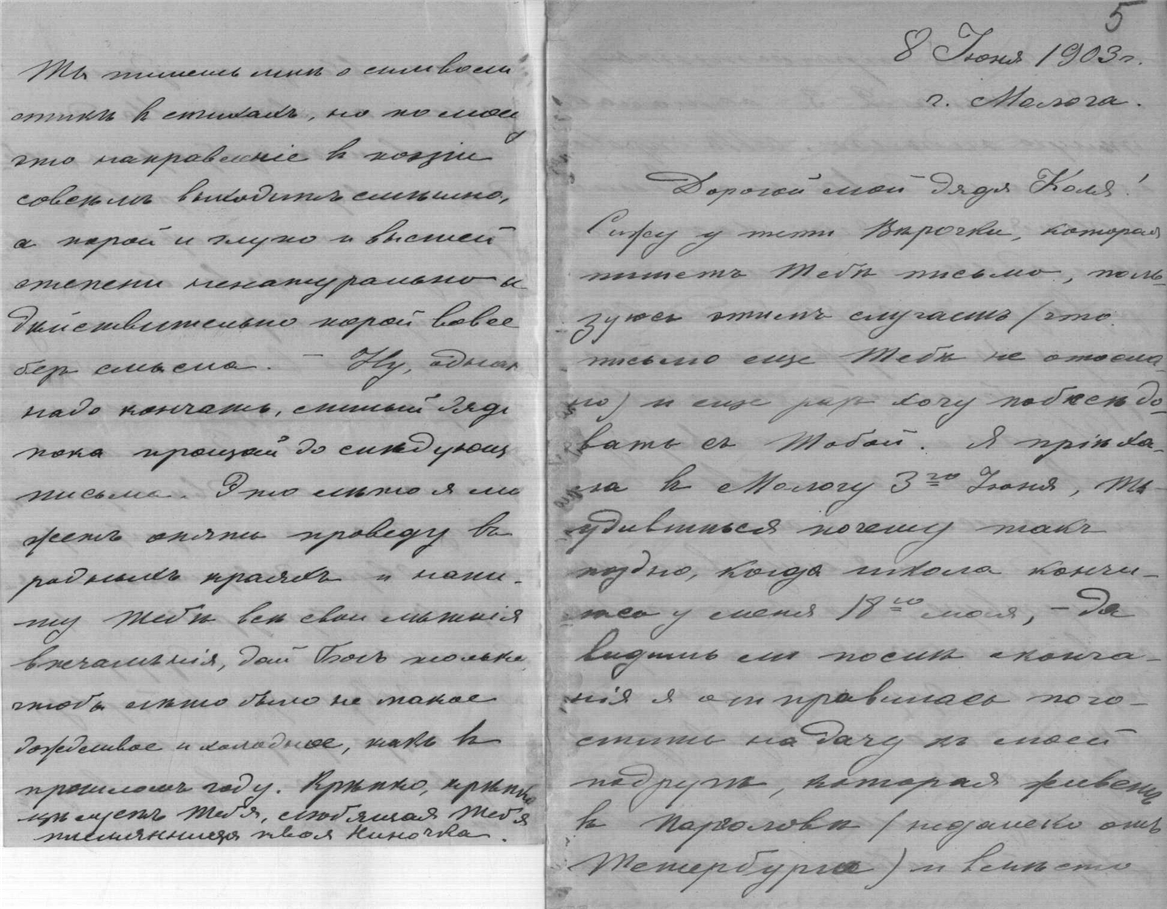 5
8 Іюня 1903 г.
г. Молога.
Дорогой мой дядя Коля!
Сижу у тети Вѣрочки, которая
пишетъ Тебѣ письмо, поль-
зуюсь этимъ случаемъ (что
письмо еще Тебѣ не отосла-
но) и еще раз хочу побесѣдо-
вать съ Тобой. Я пріѣха-
ла в Мологу 3го Іюня, Ты
удивишься почему такъ
поздно, когда школа кончи-
лась у меня 18го мая, – да
видишь ли послѣ оконча-
нія я отправилась пого-
стить на дачу къ моей
подругѣ, которая живетъ
в Парголовѣ (недалеко отъ
Петербурга) и вмѣсто
Ты пишешь мнѣ о символи
стикѣ в стихахъ, но по моему
это направленіе в поэзіи
совсѣмъ выходитъ смѣшно,
а порой и глупо и высшей
степени ненатурально и
дѣйствительно порой вовсе
без смысла. – Ну, однак
надо кончать, милый дядя
пока прощай до слѣдующ
письма. Это лѣто я мо
жетъ опять проведу въ
родныхъ краяхъ и напи-
шу Тебѣ всѣ свои лѣтнія
впечатлѣнія, дай Богъ только,
чтобы лѣто было не такое
дождливое и холодное, какъ в
прошломъ году. Крѣпко, крѣпко
цѣлуетъ Тебя, любящая Тебя
племянница твоя Ниночка.